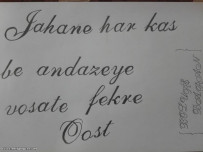 Jahane har kas
be andazeye
vosate fekre
Oost